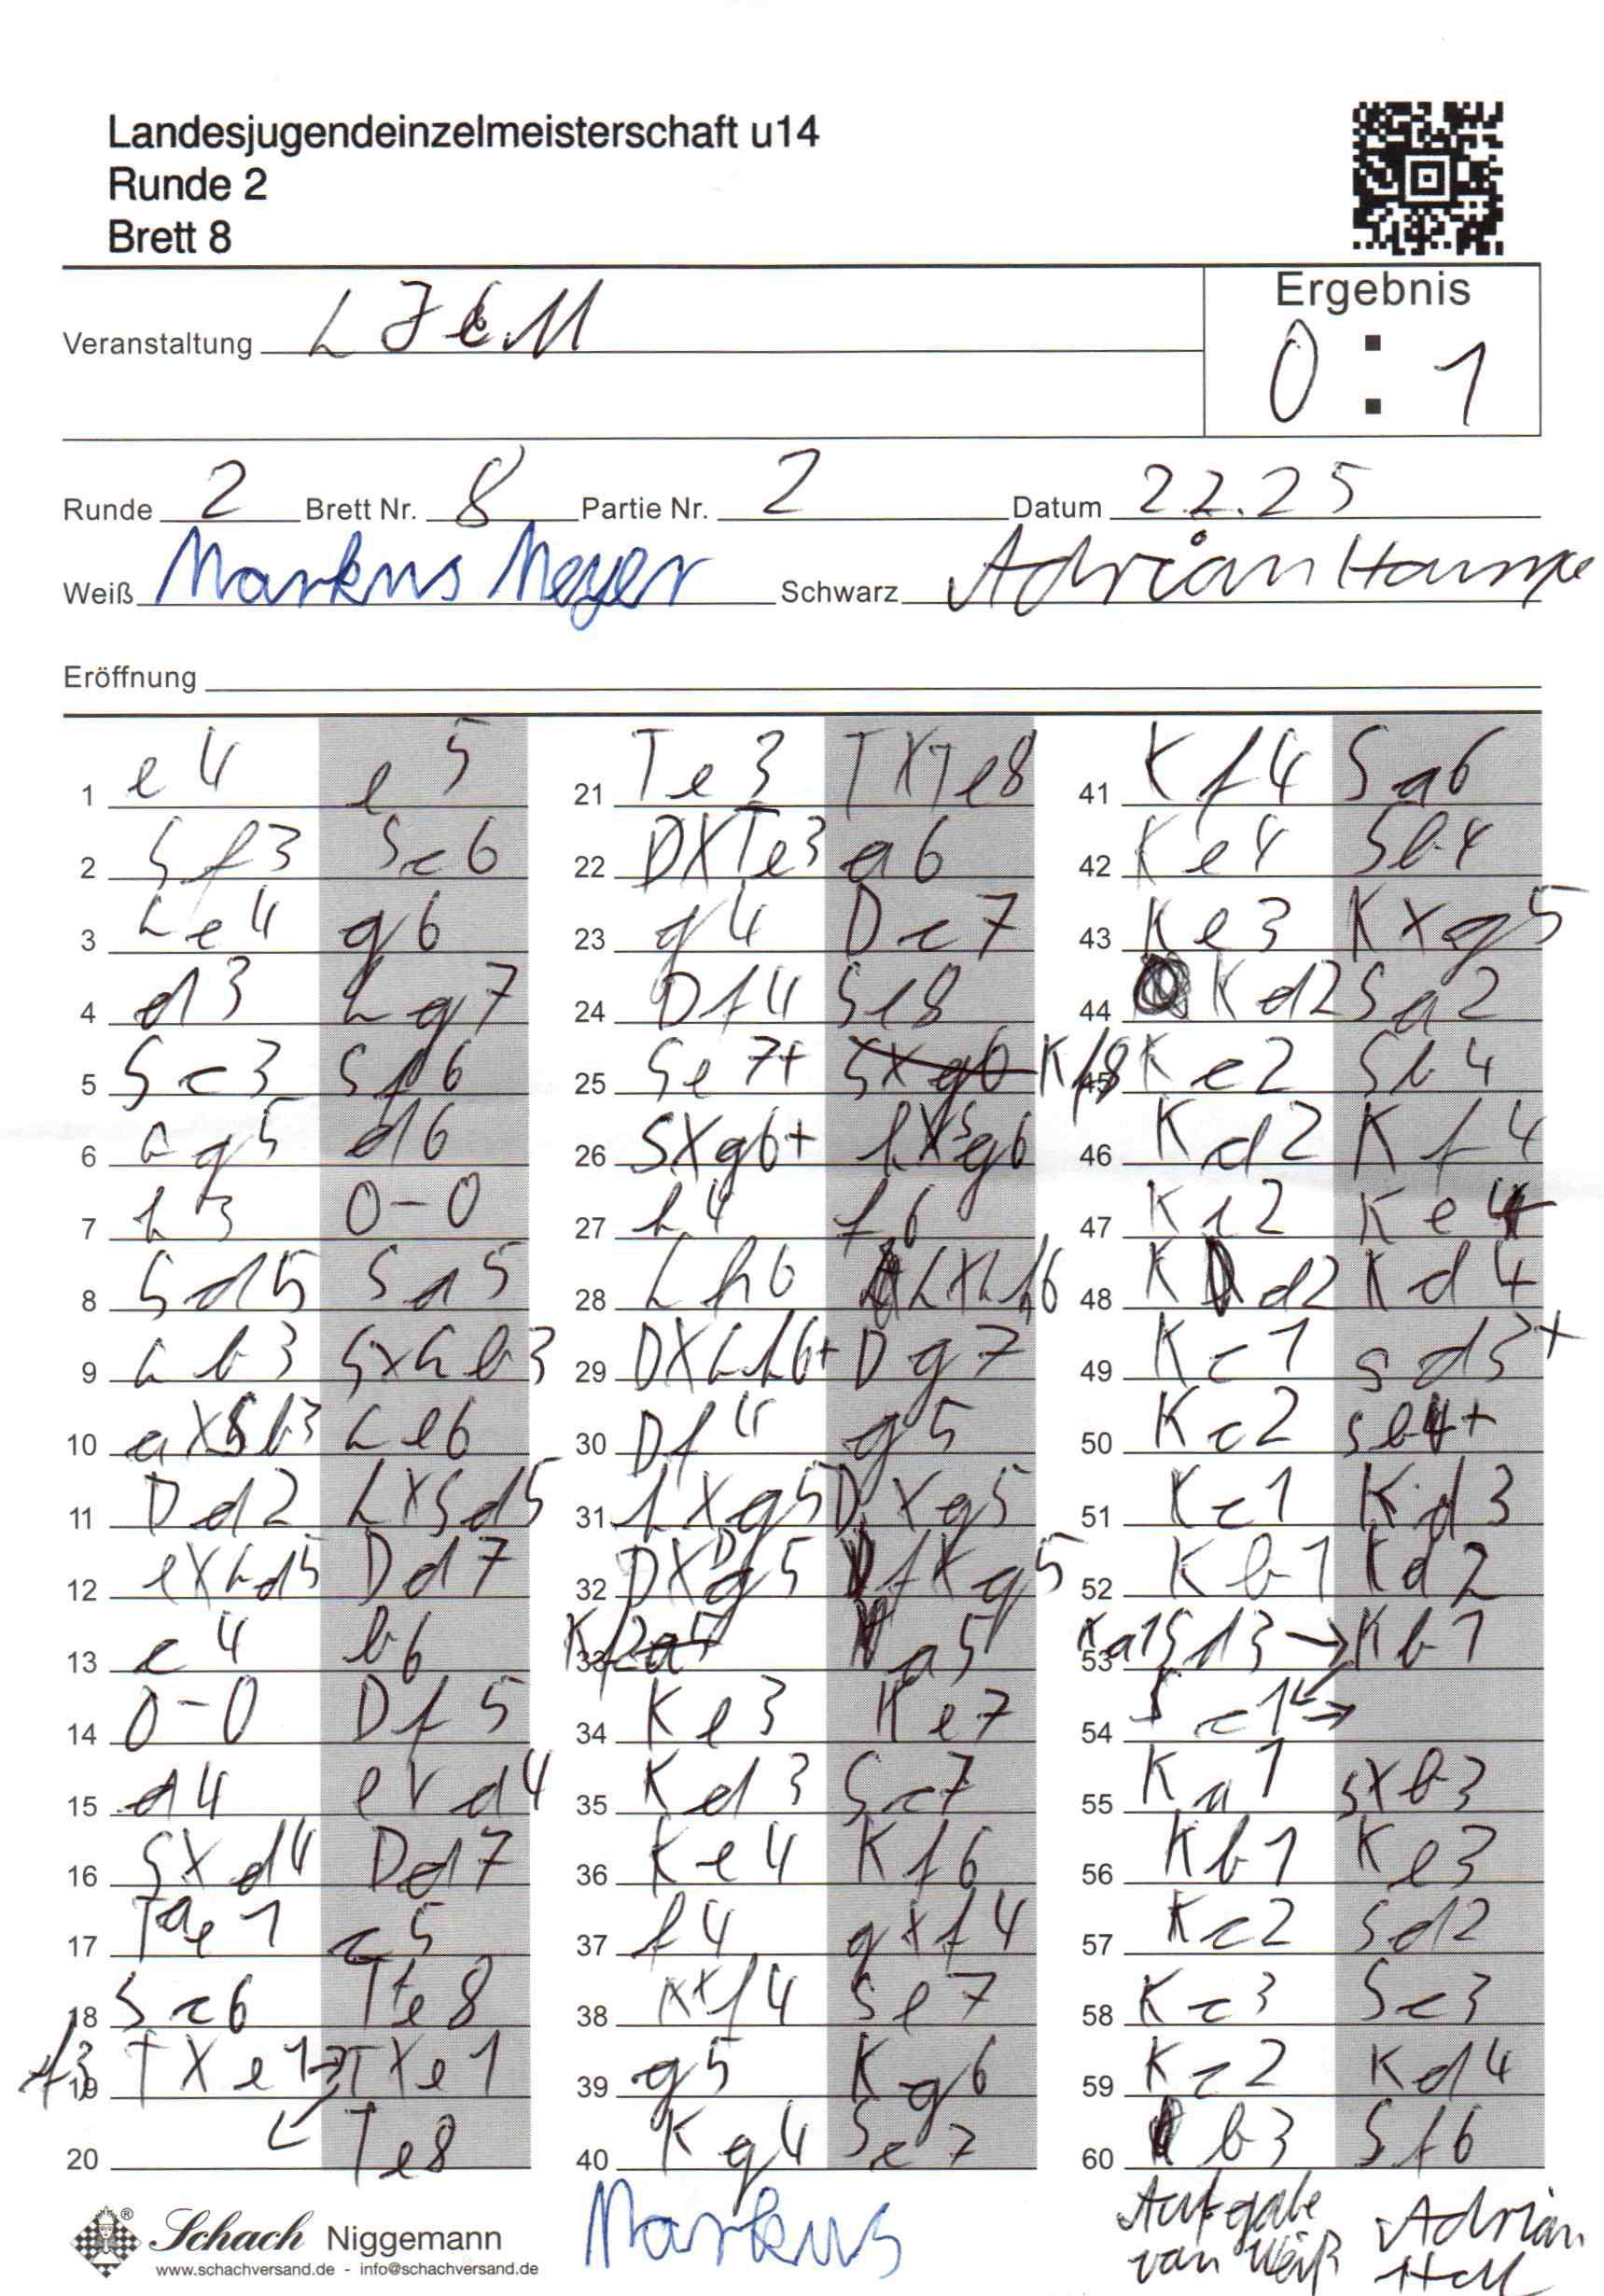 Landesjugendeinzelmeisterschaft u14
Runde 2
Brett 8
Ergebnis
Veranstaltung LJEM
0 : 1
Runde 2 Brett Nr. 8 Partie Nr. 2 Datum 2.2.25
Weiß Markus Meyer Schwarz Adrian
Eröffnung
1 e4 e5
2 Sf3 Sc6
3 Lc4 g6
4 d3 Lg7
5 Sc3 Sf6
6 Lg5 d6
7 h3 0-0
8 Sd5 Sa5
9 Lb3 SxLb3
10 axSb3 Le6
11 Dd2 LxSd5
12 exLd5 Dd7
13 c4 b6
14 0-0 Df5
15 d4 exd4
16 Sxd4 Dd7
17 Tae1 c5
18 Sc6 Tfe8
19 f3 TXe1 TXe1
20 Te8
21 Te3 TXTe8
22 DXTe3 a6
23 g4 Dc7
24 Df4 Se8
25 Se7+ Kf8
26 SXg6+ hXSg6
27 h4 f6
28 Lh6 LXLh6
29 DXLh6+ Dg7
30 Df4 g5
31 hXg5 DXg5
32 DXDg5 fXg5
33 Kf2 a5
34 Ke3 Ke7
35 Kd3 Sc7
36 Ke4 Kf6
37 f4 gxf4
38 Kxf4 Se7
39 g5 Kg6
40 Kg4 Sc7
41 Kf4 Sa6
42 Ke4 Sb4
43 Ke3 Kxg5
44 Kd2 Sa2
45 Kc2 Sb4
46 Kd2 Kf4
47 Kc2 Ke4
48 Kd2 Kd4
49 Kc1 Sd3+
50 Kc2 Sb4+
51 Kc1 Kd3
52 Kb1 Kd2
53 Ka1 Sd3 Kb1
54 Sc1
55 Ka1 Sxb3
56 Kb1 Ke3
57 Kc2 Sd2
58 Kc3 Se3
59 Kc2 Kd4
60 b3 Sf6
Schach Niggemann
www.schachversand.de - info@schachversand.de
Markus
Aufgabe
von Weiß
Adrian